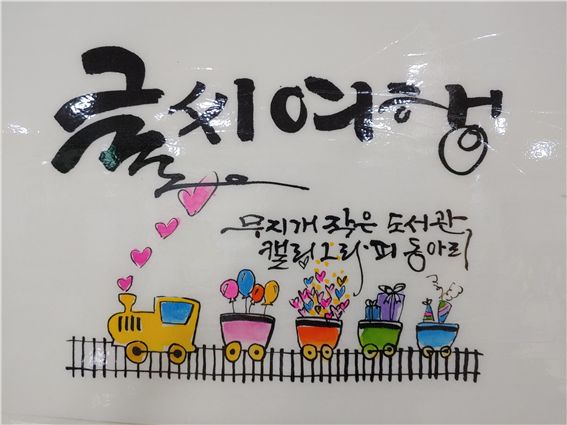 글씨여행
무지개 작은 도서관
캘리그라피 동아리